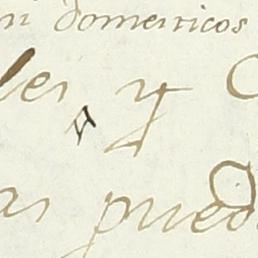 ni domesticos
les y
as pued